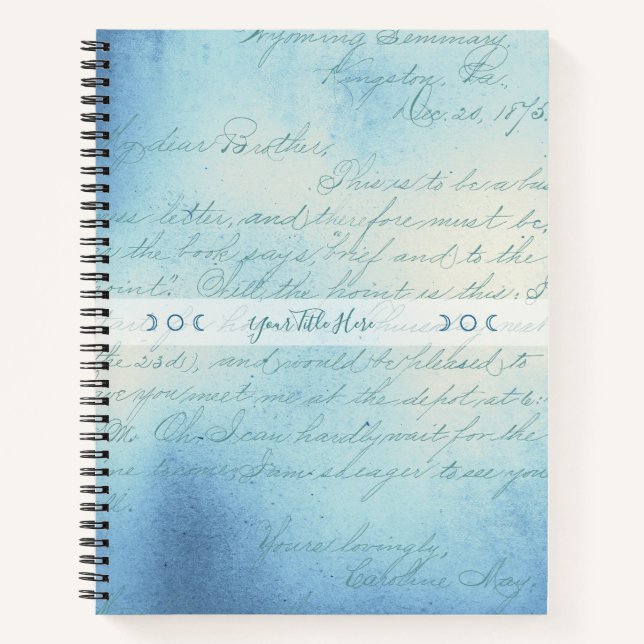 Wyoming Seminary,
Kingston, Pa.,
Dec. 20, 1875.
My dear Brother,
This is to be a bus
ess letter, and therefore must be,
the book says, "brief and to the
oint". Well, the point is this: I
Your Title Here
the 23d), and would be pleased to
ve you meet me at the depot, at 6:
M. Oh, I can hardly wait for the
me to come, I am so eager to see you
ll.
Yours lovingly,
Caroline May.